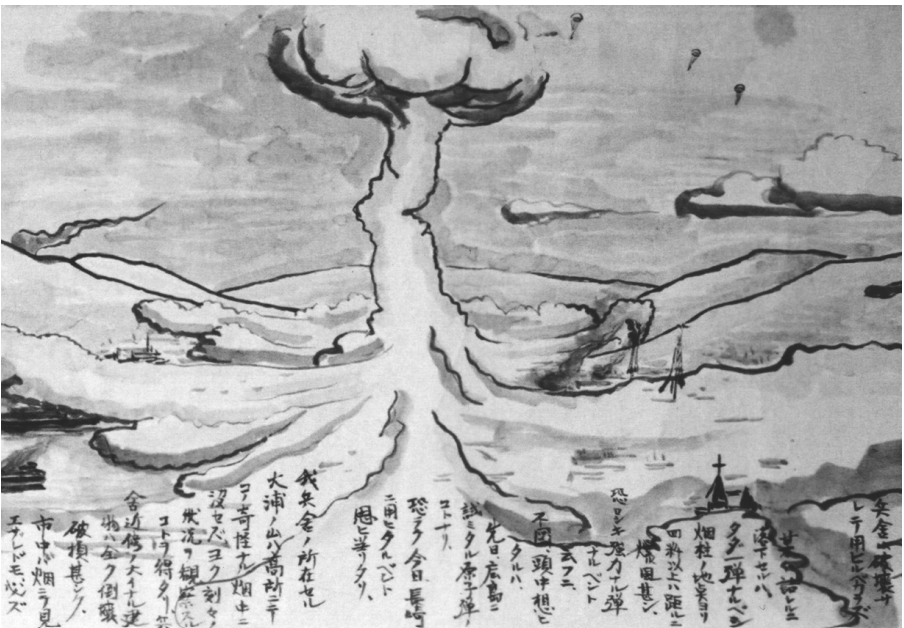 兵舎ハ破壊サ
レテ用ヒルベカラズ
其ノ語レルニ
落下セルハ、
タダ一弾ナルベシ
烟柱ノ地点ヨリ
四粁以上ハ距ルニ
爆風甚シ、
恐ロシキ強力ナル弾
ナルベシト
云フニ、
不図、頭中想ヒ
タルハ、
先日広島ニ
試ミタル原子弾ノ
コトナリ、
恐ラク今日、長崎
ニ用ヒタルベシト
思ヒ当リタリ、
我兵舎ノ所在セル
大浦ノ山ハ高所ニテ
コノ奇怪ナル烟中ニ
没セバ、ヨク刻々ノ
状況ヲ観察スル
コトヲ得タリ、兵
舎近傍ノ大イナル建
物ハ全ク倒壊
破損甚シク、
市中ハ烟ニテ見